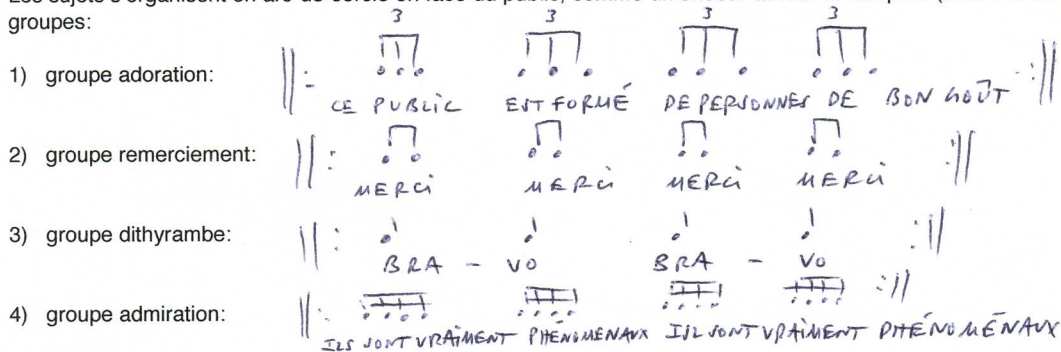 groupes:
3 3 3 3
1) groupe adoration:
CE PUBLIC EST FORMÉ DE PERSONNES DE BON GOÛT
2) groupe remerciement:
MERCi MERCi MERCi MERCi
3) groupe dithyrambe:
BRA - VO BRA - VO
4) groupe admiration:
ILS SONT VRAiMENT PHÉNOMENAUX ILS SONT VRAiMENT PHÉNOMÉNAUX